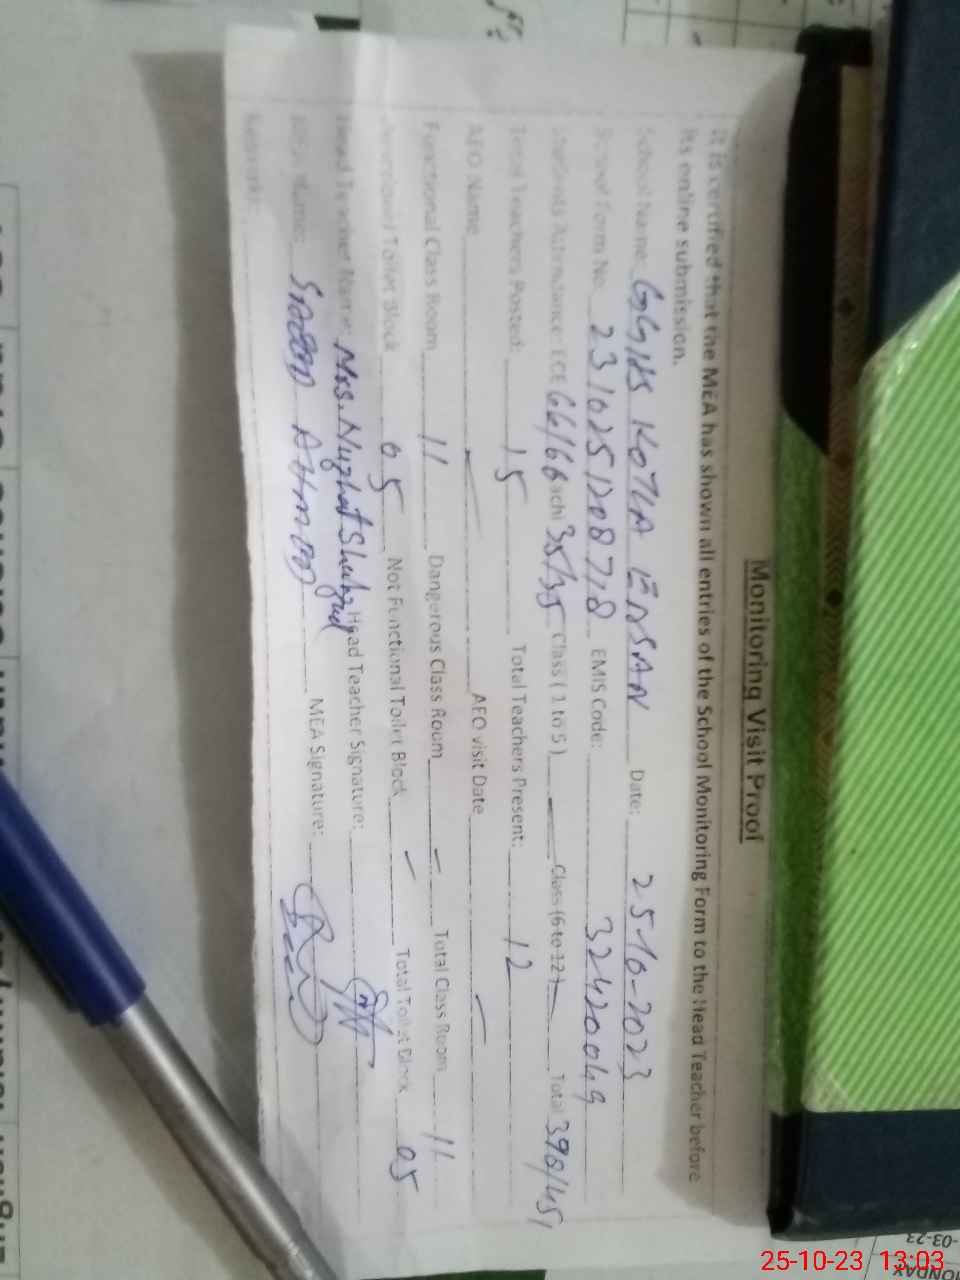 Monitoring Visit Proof
It is certified that the MEA has shown all entries of the School Monitoring Form to the Head Teacher before
its online submission.
School Name: GGHS KOTLA EHSAN Date: 25-10-2023
School Form No. 23102512087218 EMIS Code: 32420049
Students Attendance: ECE 66/66 achi 35/35 Class (1 to 5) — Class (6 to 12) — Total 390/451
Total Teachers Posted: 15 Total Teachers Present: 12
AEO Name — AEO visit Date —
Functional Class Room 11 Dangerous Class Room — Total Class Room 11
Functional Toilet Block 05 Not Functional Toilet Block — Total Toilet Block 05
Head Teacher Name: Mrs. Nuzhat Shehzad Head Teacher Signature:
MEA Name: AHMAD MEA Signature:
Remark:
25-10-23 13:03